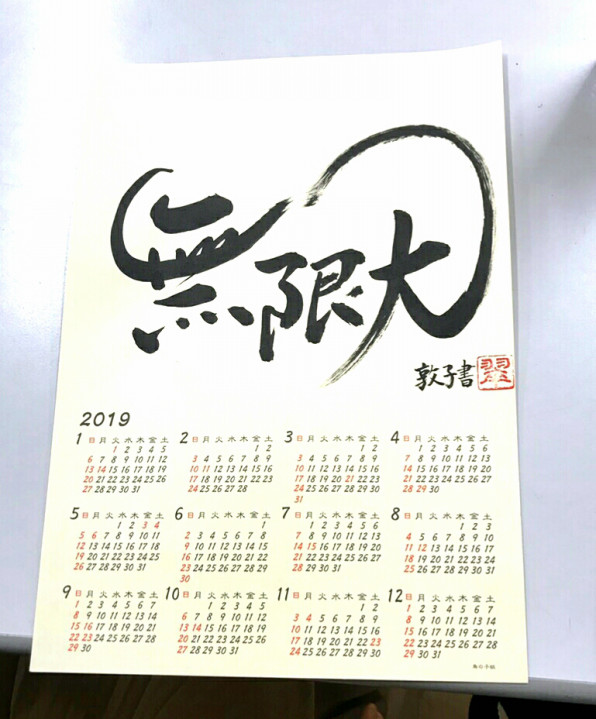 無限大
敦子書
翠
2019
1 日 月 火 水 木 金 土
1 2 3 4 5
6 7 8 9 10 11 12
13 14 15 16 17 18 19
20 21 22 23 24 25 26
27 28 29 30 31
2 日 月 火 水 木 金 土
1 2
3 4 5 6 7 8 9
10 11 12 13 14 15 16
17 18 19 20 21 22 23
24 25 26 27 28
3 日 月 火 水 木 金 土
1 2
3 4 5 6 7 8 9
10 11 12 13 14 15 16
17 18 19 20 21 22 23
24 25 26 27 28 29 30
31
4 日 月 火 水 木 金 土
1 2 3 4 5 6
7 8 9 10 11 12 13
14 15 16 17 18 19 20
21 22 23 24 25 26 27
28 29 30
5 日 月 火 水 木 金 土
1 2 3 4
5 6 7 8 9 10 11
12 13 14 15 16 17 18
19 20 21 22 23 24 25
26 27 28 29 30 31
6 日 月 火 水 木 金 土
1
2 3 4 5 6 7 8
9 10 11 12 13 14 15
16 17 18 19 20 21 22
23 24 25 26 27 28 29
30
7 日 月 火 水 木 金 土
1 2 3 4 5 6
7 8 9 10 11 12 13
14 15 16 17 18 19 20
21 22 23 24 25 26 27
28 29 30 31
8 日 月 火 水 木 金 土
1 2 3
4 5 6 7 8 9 10
11 12 13 14 15 16 17
18 19 20 21 22 23 24
25 26 27 28 29 30 31
9 日 月 火 水 木 金 土
1 2 3 4 5 6 7
8 9 10 11 12 13 14
15 16 17 18 19 20 21
22 23 24 25 26 27 28
29 30
10 日 月 火 水 木 金 土
1 2 3 4 5
6 7 8 9 10 11 12
13 14 15 16 17 18 19
20 21 22 23 24 25 26
27 28 29 30 31
11 日 月 火 水 木 金 土
1 2
3 4 5 6 7 8 9
10 11 12 13 14 15 16
17 18 19 20 21 22 23
24 25 26 27 28 29 30
12 日 月 火 水 木 金 土
1 2 3 4 5 6 7
8 9 10 11 12 13 14
15 16 17 18 19 20 21
22 23 24 25 26 27 28
29 30 31